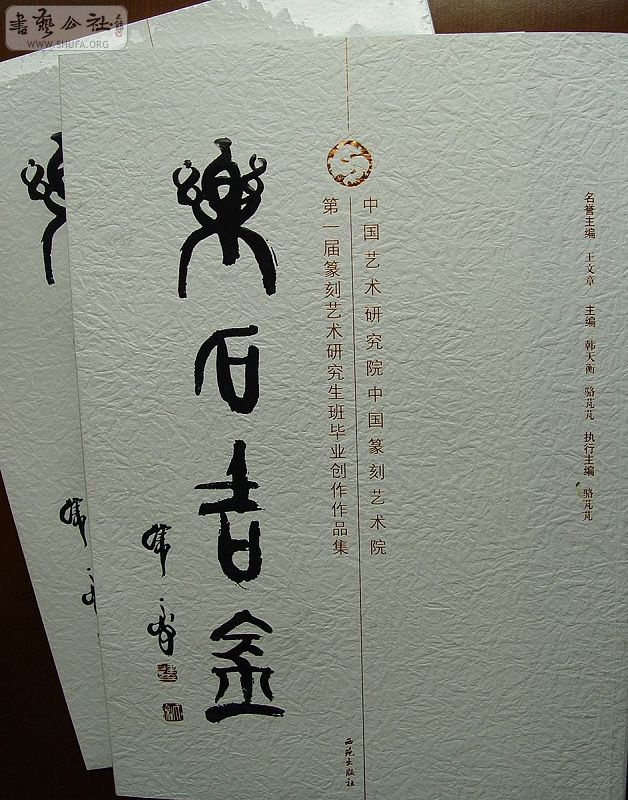 書藝公社
WWW.SHUFA.ORG
名誉主编 王文章 主编 韩天衡 骆芃芃 执行主编 骆芃芃
中国艺术研究院中国篆刻艺术院
第一届篆刻艺术研究生班毕业创作作品集
樂石吉金
西苑出版社